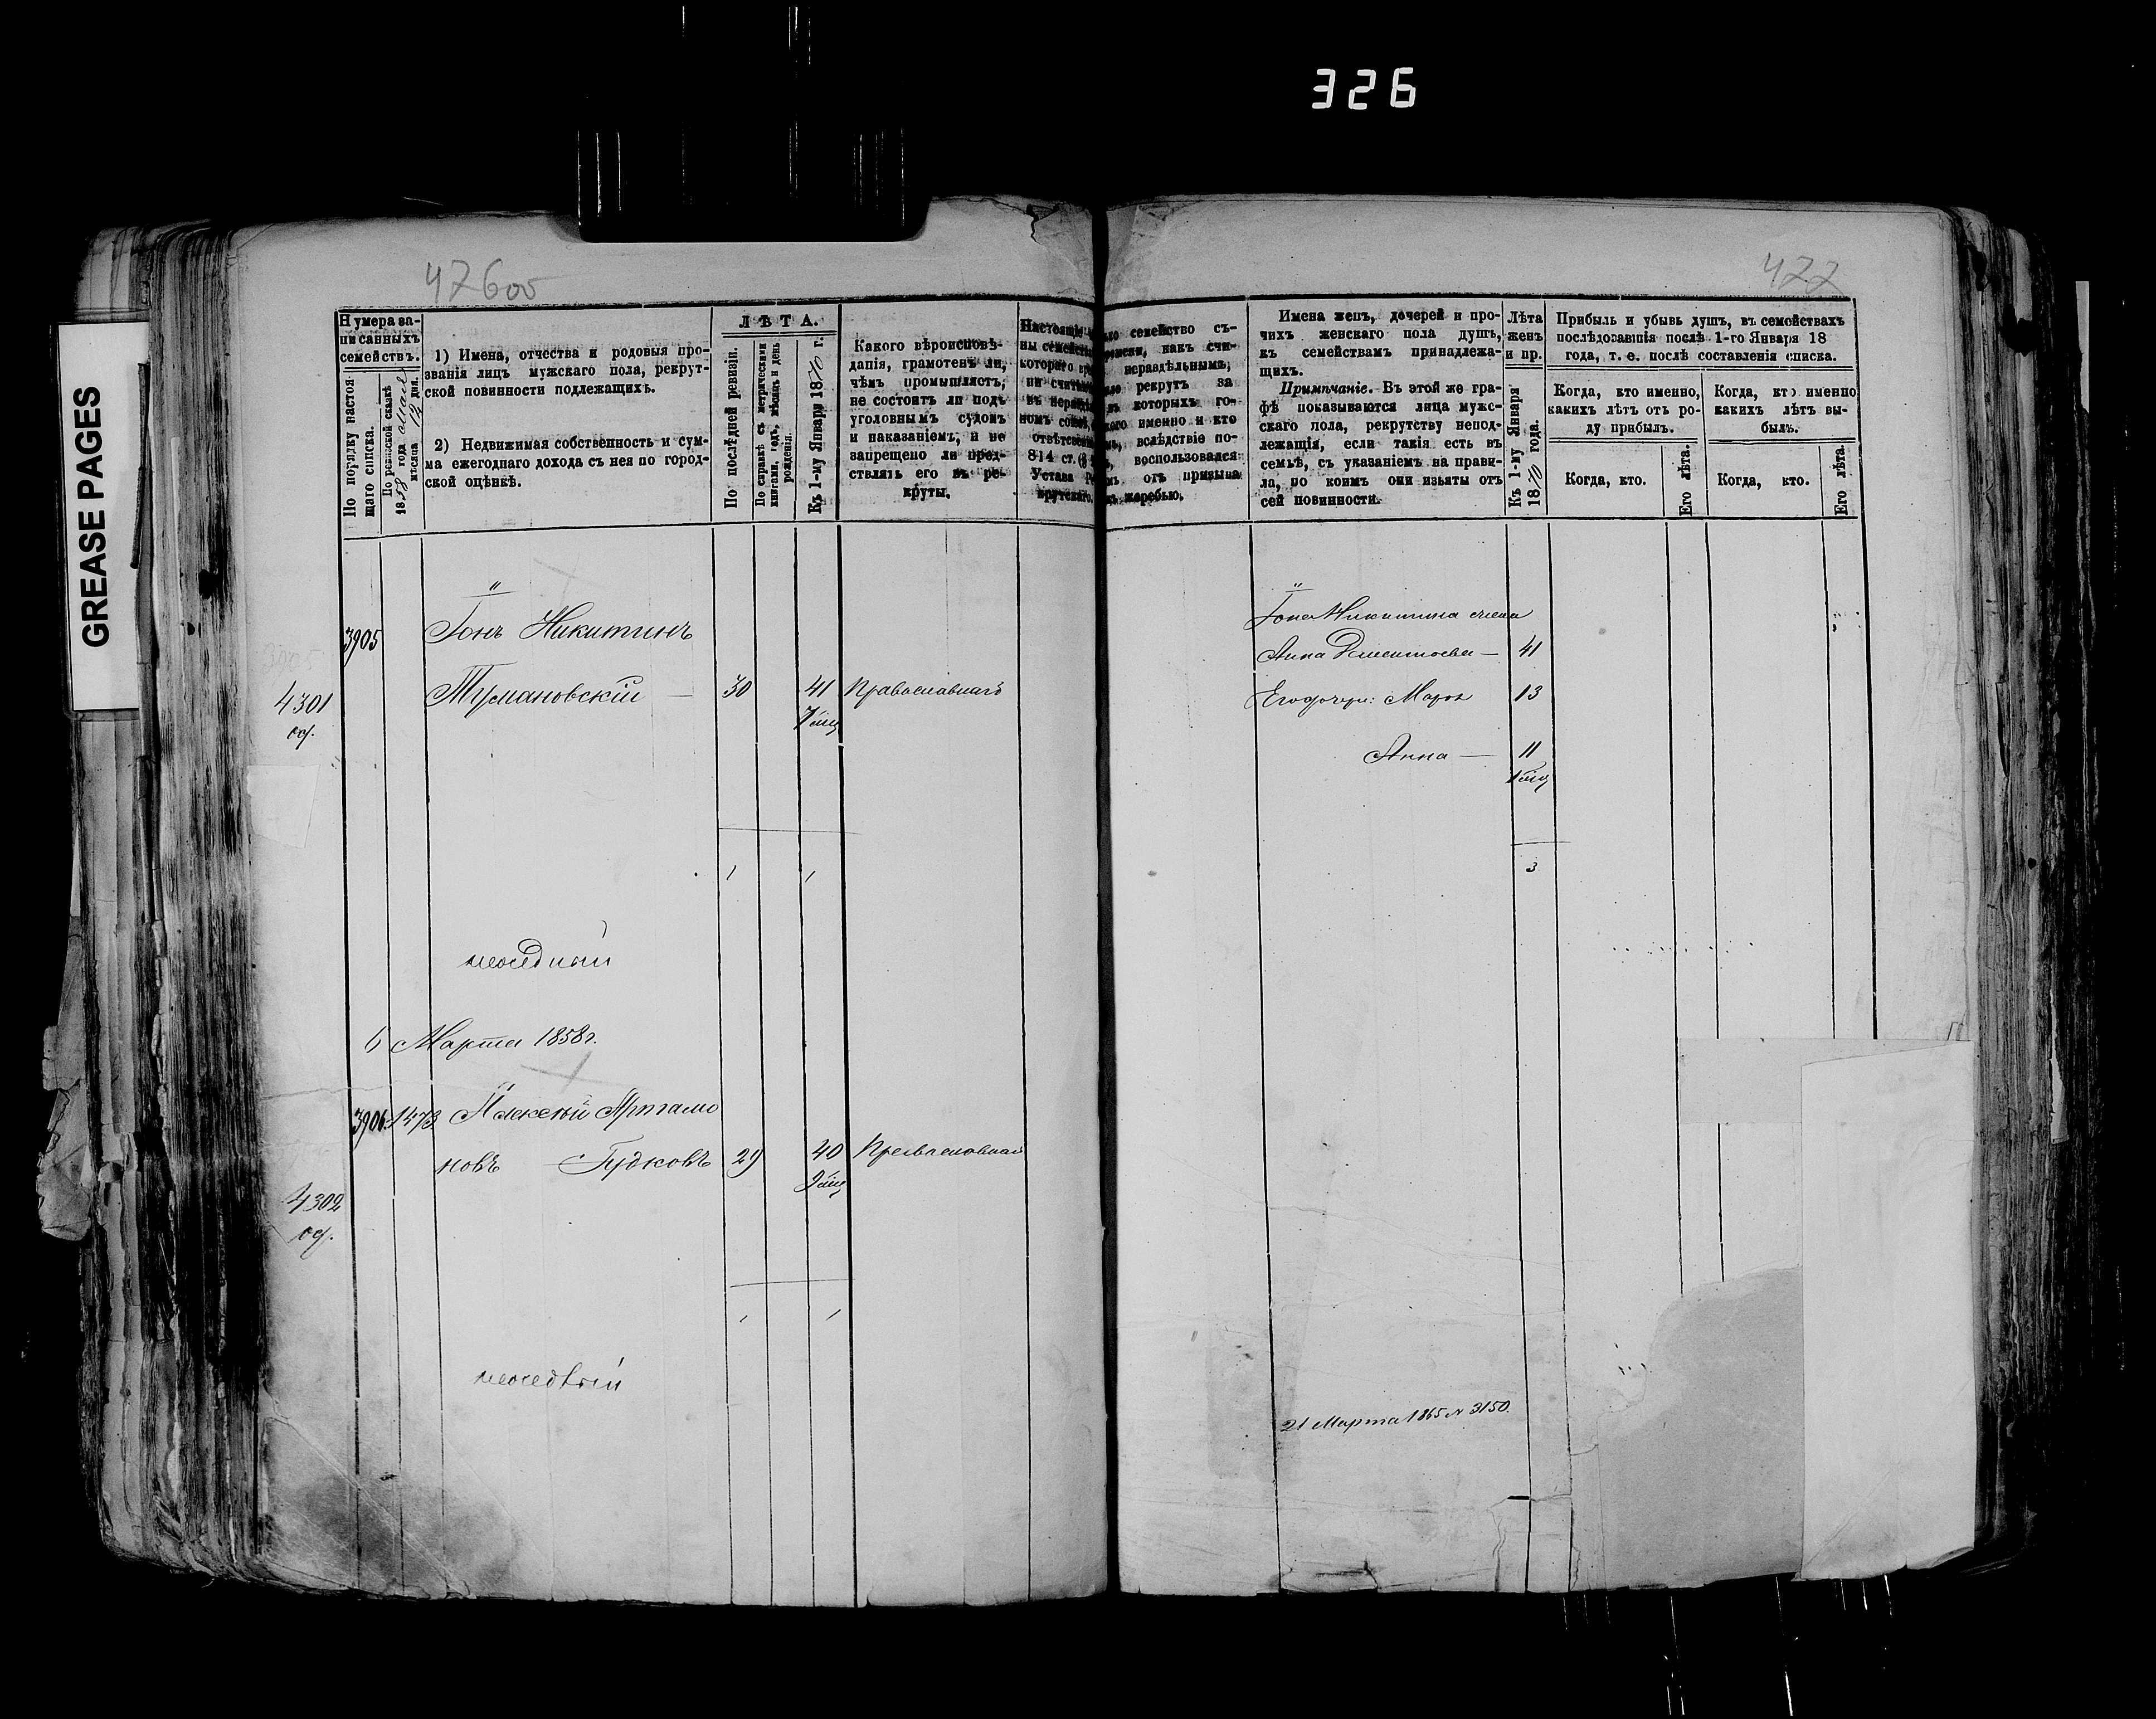 326
GREASE PAGES
47600
477
Нумера за-
писанныхъ
семействъ.
По порядку настоя-
щаго списка.
По ревизской сказкѣ
1858 года
мѣсяца 12 дня.
1) Имена, отчества и родовыя про-
званія лицъ мужскаго пола, рекрут-
ской повинности подлежащихъ.
2) Недвижимая собственность и сум-
ма ежегоднаго дохода съ нея по город-
ской оцѣнкѣ.
ЛѢТА.
По послѣдней ревизіи.
По справкѣ съ метрическими
книгами, годъ, мѣсяцъ и день
рожденія.
Къ 1-му Января 1870 г.
Какого вѣроисповѣ-
данія, грамотенъ ли,
чѣмъ промышляетъ,
не состоитъ ли подъ
уголовнымъ судомъ
и наказаніемъ, и не
запрещено ли пред-
ставлять его въ ре-
круты.
814 ст.
Устава
семейство съ-
какъ счи-
нераздѣльнымъ,
рекрутъ за
которыхъ го-
именно и кто
вслѣдствіе по-
воспользовался
отъ призыва
жеребью.
Имена женъ, дочерей и про-
чихъ женскаго пола душъ,
къ семействамъ принадлежа-
щихъ.
Примѣчаніе. Въ этой же гра-
фѣ показываются лица муж-
скаго пола, рекрутству непод-
лежащія, если такія есть въ
семьѣ, съ указаніемъ на прави-
ла, по коимъ они изъяты отъ
сей повинности.
Лѣта
женъ
и пр.
Къ 1-му Января
1870 года.
Прибыль и убыль душъ, въ семействахъ
послѣдовавшія послѣ 1-го Января 18
года, т. е. послѣ составленія списка.
Когда, кто именно,
какихъ лѣтъ отъ ро-
ду прибылъ.
Когда, кто именно
какихъ лѣтъ вы-
былъ.
Когда, кто.
Его лѣта.
Когда, кто.
Его лѣта.
3905
Іонъ Никитинъ
Тумановскій — 30 41 Православнаго
4301
Іона Никитина жена
Анна Дементьева — 41
Его дочери: Марѳа 13
Анна — 11
1 1
3
неоседлый
6 Марта 1858 г.
3906 1473 Алексѣй Артамо
новъ — Гудковъ 29 40 Православнаго
4302
1 1
неоседлый
21 Марта 1865 № 3150.